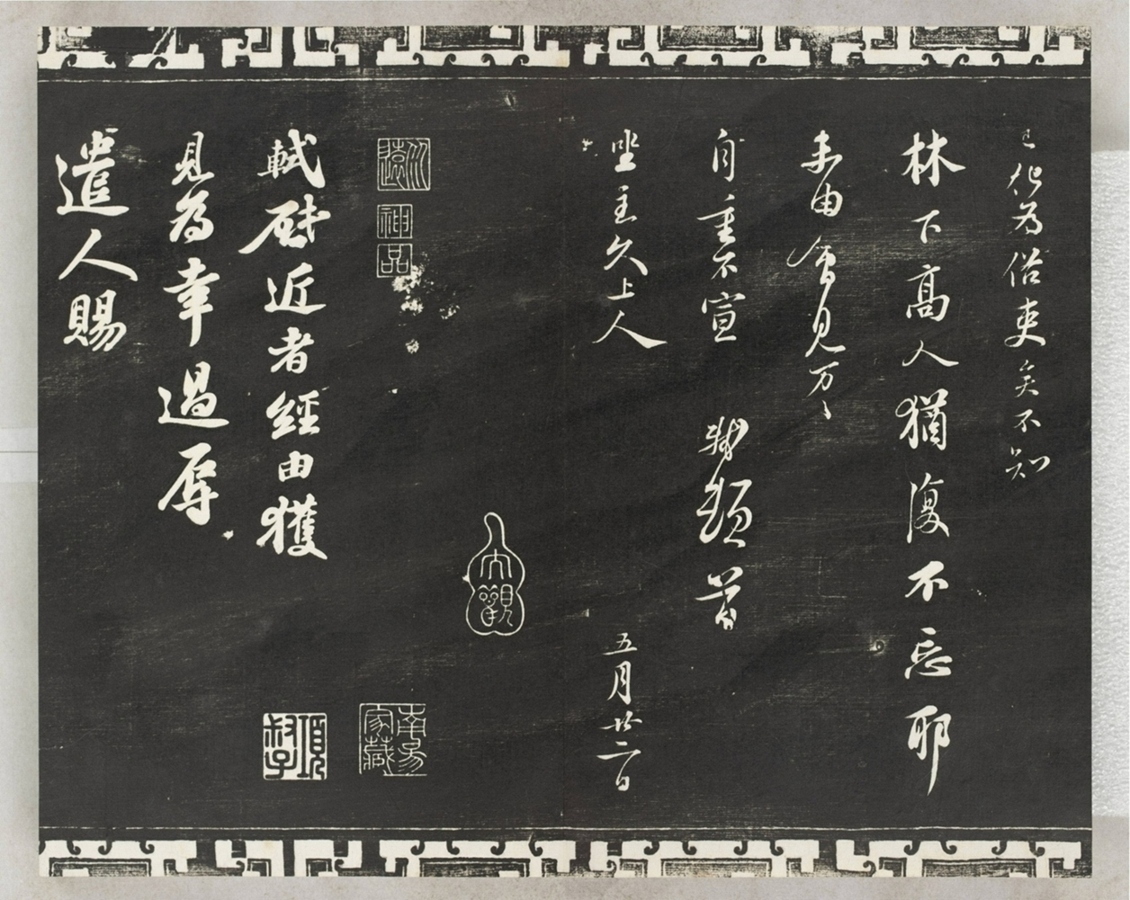 已化為俗吏矣不知
林下高人猶復不忘耶
未由會見万〻
自重不宣 軾頓首
坐主久上人 五月廿二日
神品
項叔子
軾啟近者經由獲
見為幸過辱
遣人賜